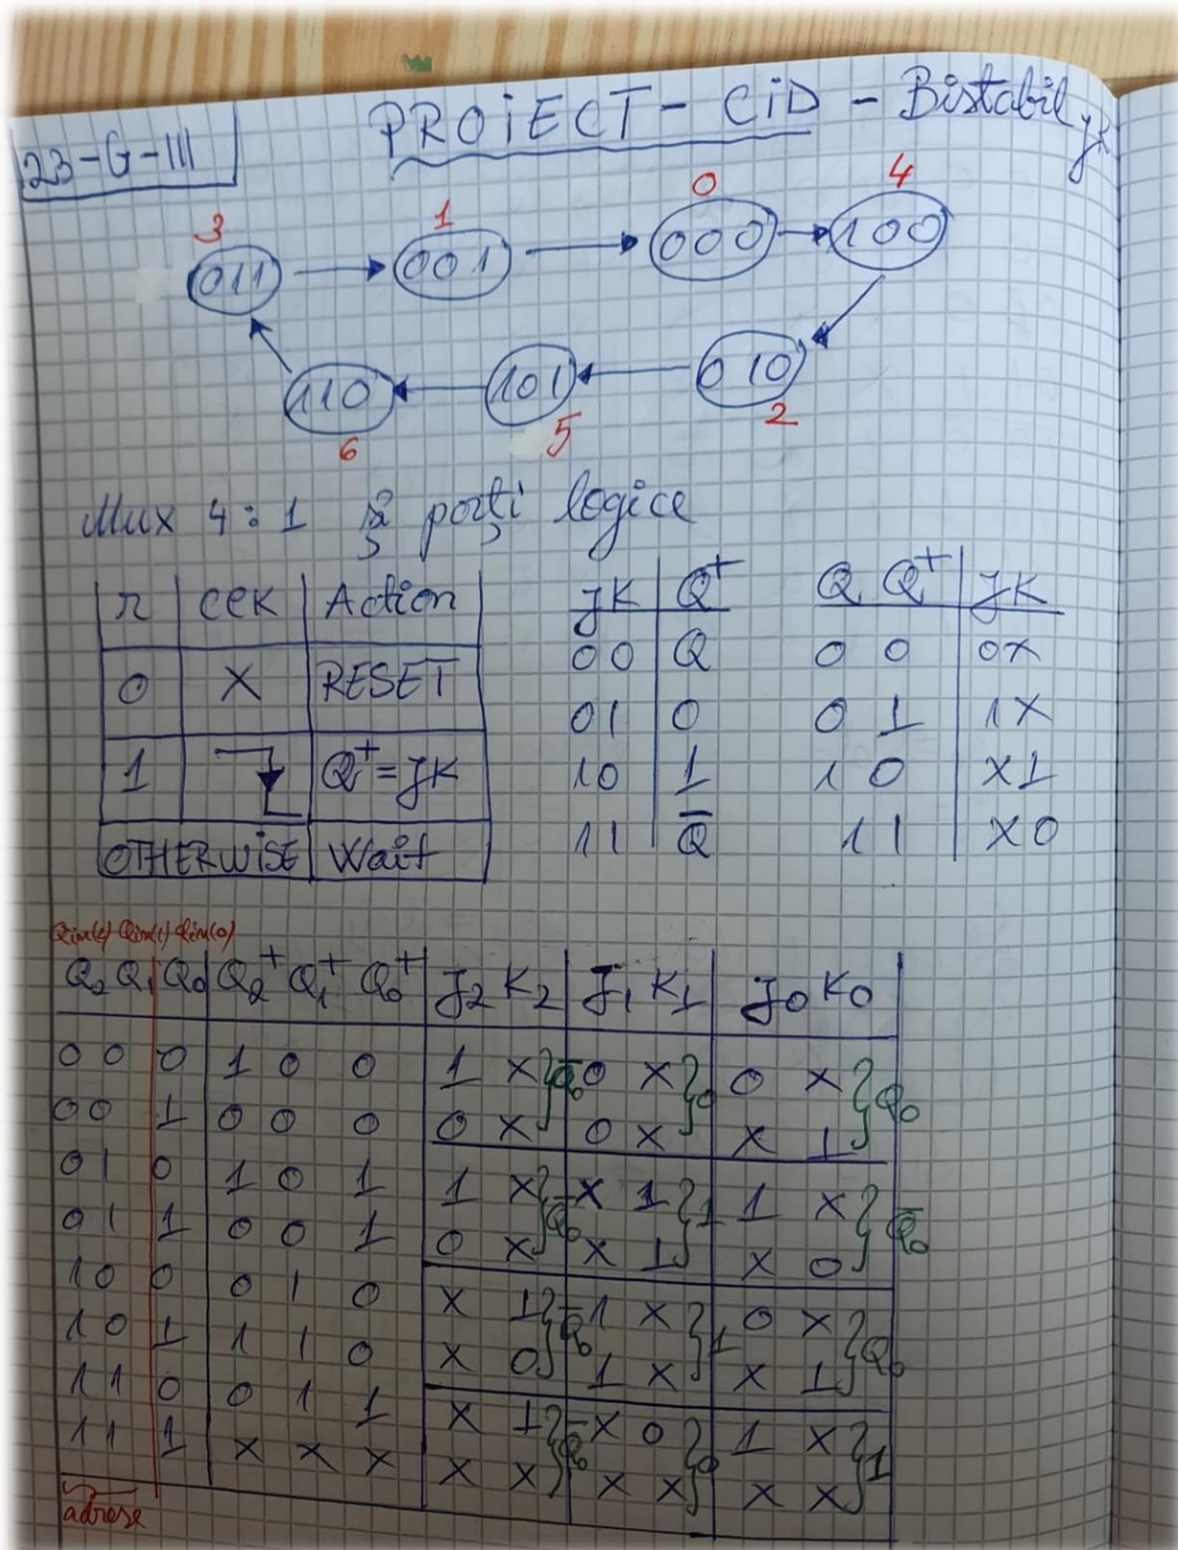 PROIECT - CID - Bistabil JK
23-G-III
3 1 0 4
011 001 000 100
110 101 010
6 5 2
Mux 4:1 și porți logice
r CLK Action
0 X RESET
1 Q⁺=JK
OTHERWISE Wait
JK Q⁺
00 Q
01 0
10 1
11 Q̅
Q Q⁺ JK
0 0 0X
0 1 1X
1 0 X1
1 1 X0
Qin(2) Qin(1) Qin(0)
Q₂ Q₁ Q₀ Q₂⁺ Q₁⁺ Q₀⁺ J₂ K₂ J₁ K₁ J₀ K₀
0 0 0 1 0 0 1 X } Q̅₀ 0 X } 0 0 X } Q₀
0 0 1 0 0 0 0 X 0 X X 1
0 1 0 1 0 1 1 X } Q̅₀ X 1 } 1 1 X } Q̅₀
0 1 1 0 0 1 0 X X 1 X 0
1 0 0 0 1 0 X 1 } Q̅₀ 1 X } 1 0 X } Q₀
1 0 1 1 1 0 X 0 1 X X 1
1 1 0 0 1 1 X 1 } Q̅₀ X 0 } 0 1 X } 1
1 1 1 X X X X X X X X X
adrese